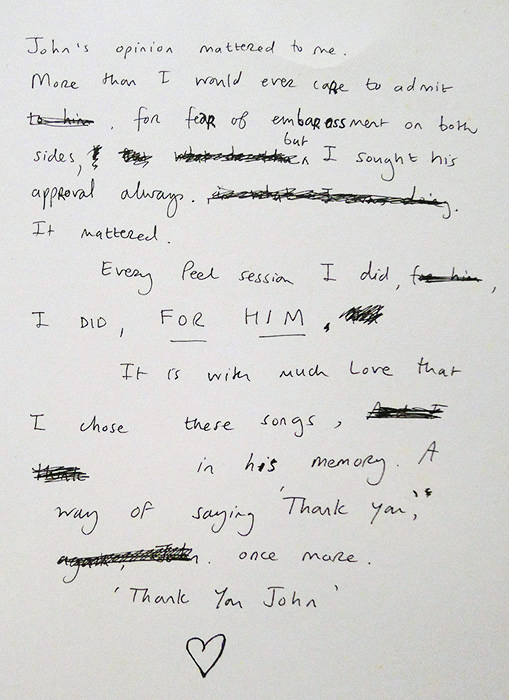 John's opinion mattered to me.
More than I would ever care to admit
to him, for fear of embarassment on both
sides, but I sought his
approval always.
It mattered.
Every Peel session I did, for him,
I DID, FOR HIM,
It is with much Love that
I chose these songs,
in his memory. A
way of saying 'Thank you',
once more.
'Thank You John'